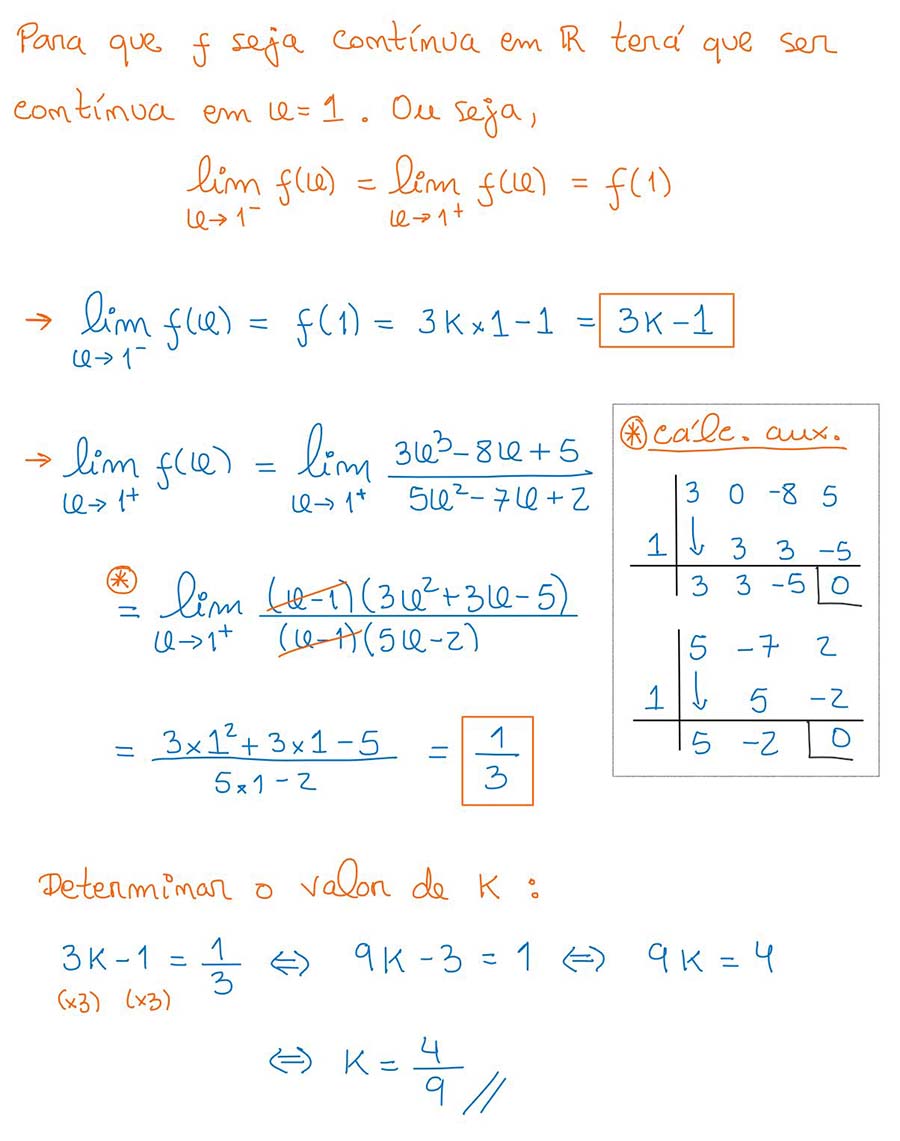 Para que f seja contínua em ℝ terá que ser
contínua em x = 1. Ou seja,
lim f(x) = lim f(x) = f(1)
x→1⁻ x→1⁺
→ lim f(x) = f(1) = 3K×1-1 = 3K-1
x→1⁻
→ lim f(x) = lim (3x³-8x+5)/(5x²-7x+2)
x→1⁺ x→1⁺
(*) = lim ((x-1)(3x²+3x-5))/((x-1)(5x-2))
x→1⁺
= (3×1²+3×1-5)/(5×1-2) = 1/3
(*) cálc. aux.
3 0 -8 5
1 ↓ 3 3 -5
3 3 -5 0
5 -7 2
1 ↓ 5 -2
5 -2 0
Determinar o valor de K :
3K-1 = 1/3 ⇔ 9K-3 = 1 ⇔ 9K = 4
(×3) (×3)
⇔ K = 4/9 //